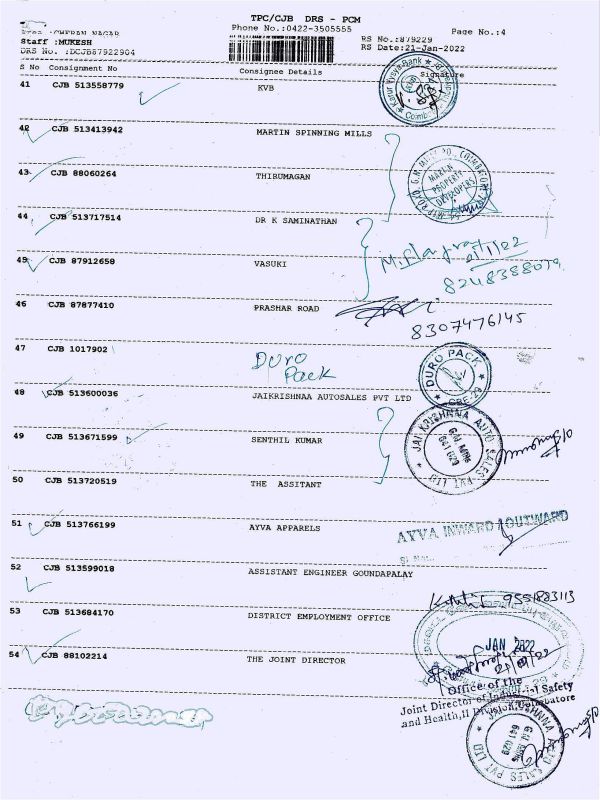 TPC/CJB DRS - PCM
Phone No.:0422-3505555
Page No.:4
Area :CHERAN NAGAR
Staff :MUKESH
RS No.:879229
DRS No. :DCJB87922904
RS Date:21-Jan-2022
S No Consignment No Consignee Details Signature
41 CJB 513558779 KVB
42 CJB 513413942 MARTIN SPINNING MILLS
43 CJB 88060264 THIRUMAGAN
MAREN PROPERTY DEVELOPERS
44 CJB 513717514 DR K SAMINATHAN
45 CJB 87912658 VASUKI
8248388079
46 CJB 87877410 PRASHAR ROAD
8307476145
47 CJB 1017902
DURO
Pack
DURO PACK
CBE-29
48 CJB 513600036 JAIKRISHNAA AUTOSALES PVT LTD
JAI KRISHNAA AUTO SALES PVT LTD
G.N. Mills
641 029
49 CJB 513671599 SENTHIL KUMAR
50 CJB 513720519 THE ASSITANT
51 CJB 513766199 AYVA APPARELS
AYVA INWARD / OUTWARD
52 CJB 513599018 ASSISTANT ENGINEER GOUNDAPALAY
53 CJB 513684170 DISTRICT EMPLOYMENT OFFICE
JAN 2022
54 CJB 88102214 THE JOINT DIRECTOR
Office of the
Joint Director of Industrial Safety
and Health,II Division,Coimbatore
JAI KRISHNAA AUTO SALES PVT LTD
G.N. Mills
641 029